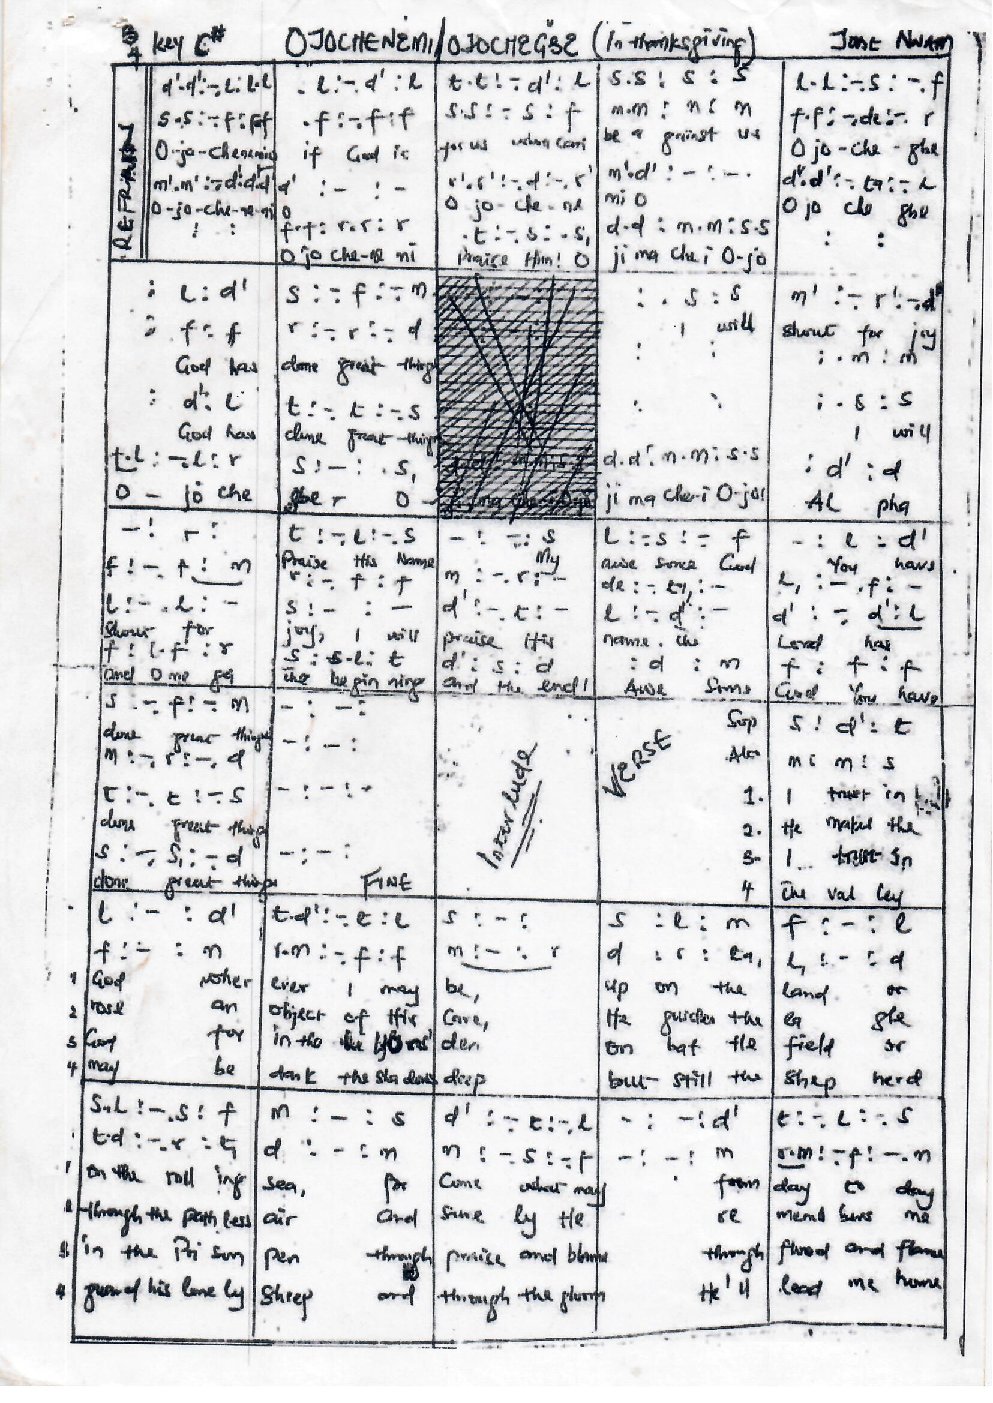 3/4 key C# OJOCHENEMI/OJOCHEGBE (In thanksgiving) JUDE NNAM
REFRAIN
d'.d':-.l:l.l .l:-.d':l t.t:-.d':l s.s:s:s l.l:-.s:-.f
s.s:-.f:f.f .f:-.f:f s.s:-.s:f m.m:m:m f.f:-.de:-.r
O-jo-chenemi if God is for us whom can be a gainst us O jo-che-ghe
m'.m':-.d'.d'.d' d' :- :- r'.r':-.d':-.r' m'.d':-:-. d'.d':-.ta:-.l
O-jo-che-ne-mi O O jo-che-ne mi O O jo che ghe
: : f.f:r.r:r .t:-.s:.s, d.d:m.m:s.s : :
O jo che-ne mi Praise Him! O ji ma che i O-jo
: l:d' s:-.f:-.m :.s:s m':-.r':-.d'
: f:f r:-.r:-.d I will shout for joy
God has done great things : : :.m:m
: d':l t:-.t:-.s : : :.s:s
God has done great things I will
t.l:-.l:r s:-:.s, d.d:m.m:s.s :d':d
O - jo che gbe r O - ji ma che-i O-jo Al pha
-: r: t:-.l:-.s -: -:s l:-.s:-.f -:l:d'
Praise His Name My awe some God You have
f:-.f:m r:-.f:f m:-.r:- de:-.ta,:- l,:-.f:-
l:-.l:- s:- :- d':-.t:- l:-.d':- d':-.d':l
shout for joy, I will praise His name. the Lord has
f:f.f:r s:s.l:t d':s:d :d:m f:f:f
and O me ga the be gin ning and the end! Awe Some God You have
s:-.f:-.m -:-: Sop s:d':t
done great things
m:-.r:-.d -:-: Alto m:m:s
t:-.t:-.s -:-:- 1. I trust in
done great things 2. He makes the
s:-.s,:-.d -:-: 3. I trust in
done great things FINE Interlude VERSE 4 The val ley
l:-:d' t.d':-.t:l s:-: s:l:m f:-:l
f:-:m r.m:-.f:f m:-:r d:r:ta, l,:-:d
1 God wher ever I may be, up on the land or
2 rose an object of His Care, He guides the ea gle
3 God for in the li ons' den on bat tle field or
4 may be dark the shadows deep but still the Shep herd
s.l:-.s:f m:-:s d':-.t:-.l -:-:d' t:-.l:-.s
t.d:-.r:t, d:-:m m:-.s:-.f -:-:m r.m:-.f:-.m
1 on the roll ing sea, for Come what may from day to day
2 through the path less air and sure ly He re mem bers me
3 in the Pri son pen through praise and blame through flood and flame
4 guard his lone ly Sheep and through the gloom He'll lead me home